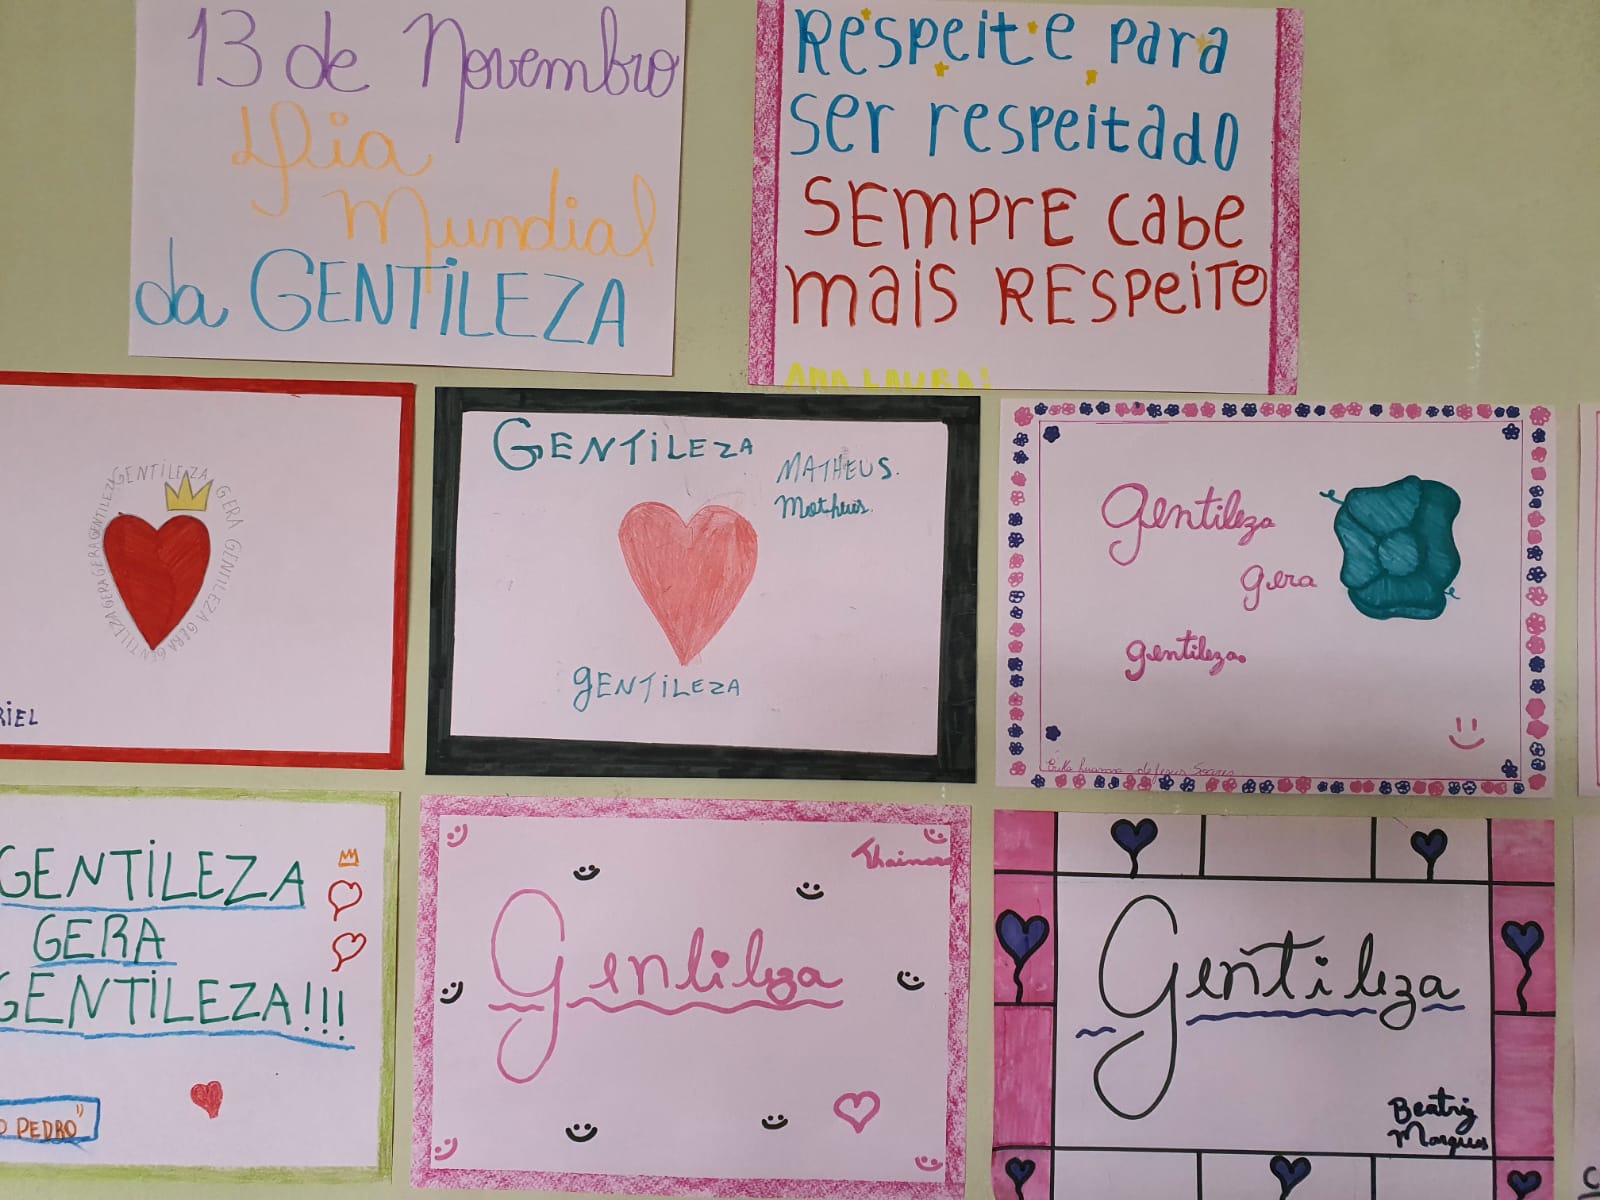 13 de Novembro
Dia
Mundial
da GENTILEZA
Respeite para
ser respeitado
SEMPRE cabe
mais RESPEITO
ANA LAURA!
GENTILEZA GERA GENTILEZA GERA GENTILEZA GERA GERA GENTILEZA
RIEL
GENTILEZA
MATHEUS.
Matheus.
gENTILEZA
Gentileza
gera
gentileza.
de Jesus Soares
GENTILEZA
GERA
GENTILEZA!!!
O PEDRO"
Thainara
Gentileza
Gentileza
Beatriz
Marques